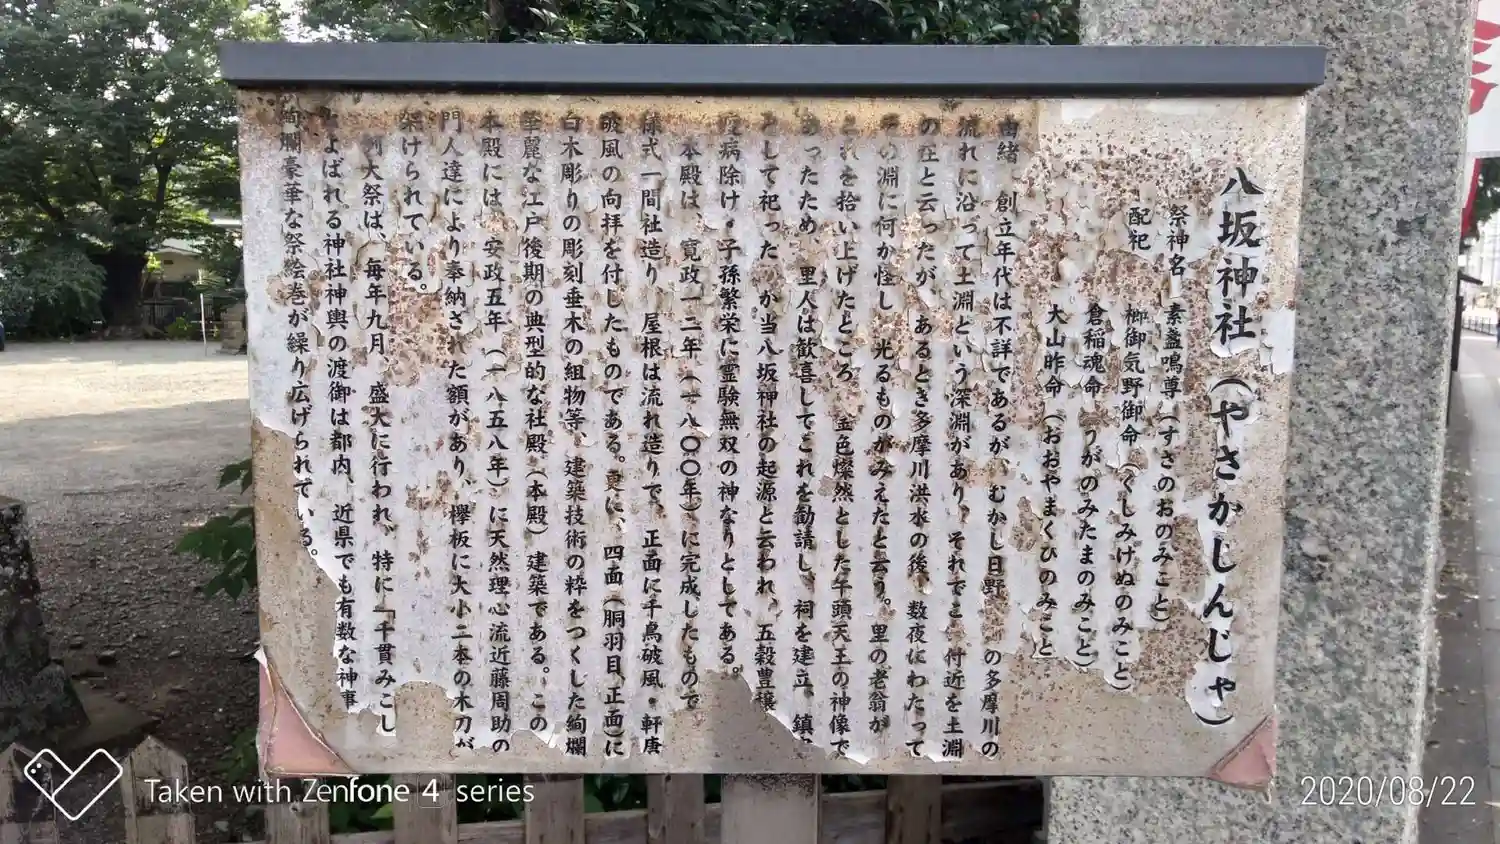 八坂神社（やさかじんじゃ）
祭神名 素盞嗚尊（すさのおのみこと）
配祀 櫛御気野御命（くしみけぬのみこと）
倉稲魂命（うがのみたまのみこと）
大山昨命（おおやまくひのみこと
由緒 創立年代は不詳であるが、むかし日野 の多摩川の
流れに沿って土淵という深淵があり、それでこ 付近を土淵
の庄と云ったが、あるとき多摩川洪水の後、数夜にわたって
その淵に何か怪し 光るものがみえたと云う。里の老翁が
これを拾い上げたところ 金色燦然とした午頭天王の神像で
あったため、里人は歓喜してこれを勧請し、祠を建立、鎮
として祀った が当八坂神社の起源と云われ、五穀豊穣
疫病除け・子孫繁栄に霊験無双の神なりとしてある。
本殿は、寛政一二年（一八〇〇年）に完成したもので
様式一間社造り、屋根は流れ造りで、正面に千鳥破風・軒唐
破風の向拝を付したものである。更に、四面（胴羽目、正面）に
白木彫りの彫刻垂木の組物等、建築技術の粋をつくした絢爛
華麗な江戸後期の典型的な社殿（本殿）建築である。この
本殿には、安政五年（一八五八年）に天然理心流近藤周助の
門人達により奉納された額があり、欅板に大小二本の木刀が
架けられている。
例大祭は、毎年九月 盛大に行われ、特に「千貫みこし
とよばれる神社神輿の渡御は都内、近県でも有数な神事
絢爛豪華な祭絵巻が繰り広げられている。
Taken with Zenfone 4 series
2020/08/22